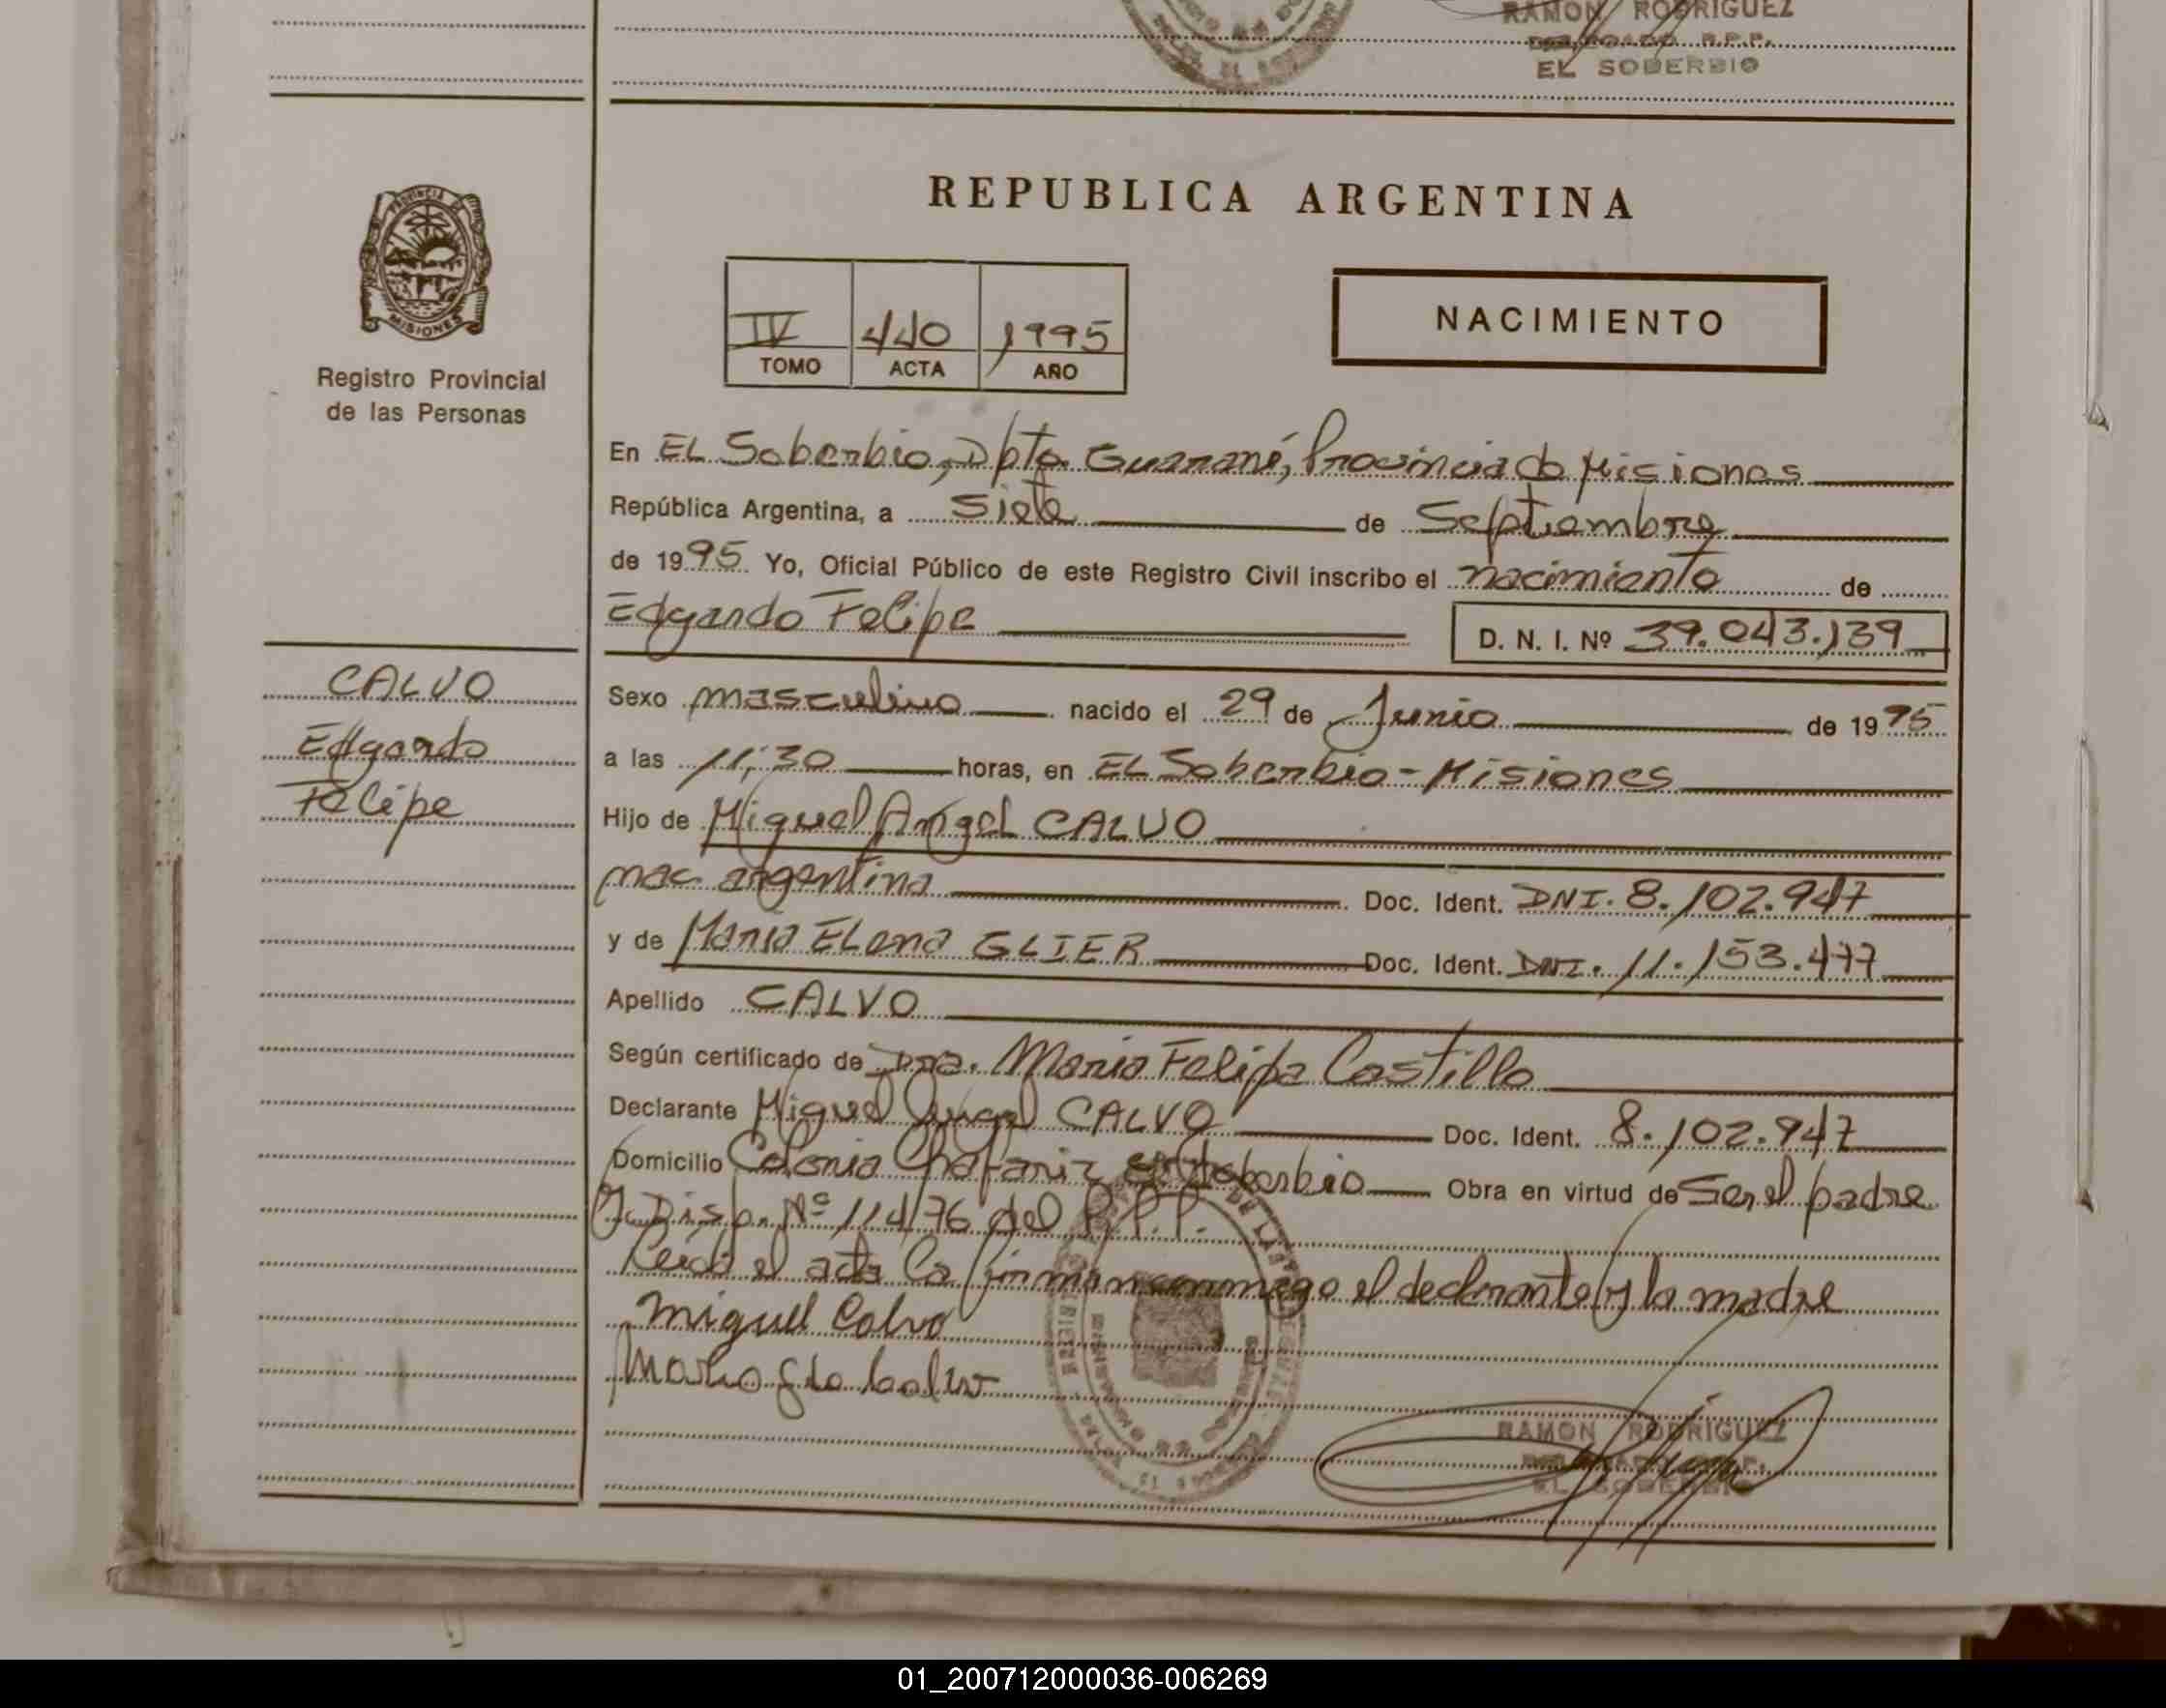 RAMON RODRIGUEZ
DELEGADO R.P.P.
EL SOBERBIO
PROVINCIA DE
MISIONES
Registro Provincial
de las Personas
REPUBLICA ARGENTINA
IV 440 1995
TOMO ACTA AÑO
NACIMIENTO
En EL Soberbio, Dpto Guaraní, Provincia de Misiones
República Argentina, a Siete de Septiembre
de 1995 Yo, Oficial Público de este Registro Civil inscribo el nacimiento de
Edgardo Felipe D. N. I. Nº 39.043.139
CALVO
Edgardo
Felipe
Sexo masculino nacido el 29 de Junio de 1995
a las 11,30 horas, en EL Soberbio - Misiones
Hijo de Miguel Angel CALVO
nac. argentina Doc. Ident. DNI. 8.102.947
y de Maria Elena GLIER Doc. Ident. DNI. 11.153.477
Apellido CALVO
Según certificado de Dra. Maria Felipa Castillo
Declarante Miguel Angel CALVO Doc. Ident. 8.102.947
Domicilio Colonia Chafariz El Soberbio Obra en virtud de Ser el padre
y Disp. Nº 114/76 del R.P.P.
Leida el acta la firman conmigo el declarante y la madre
Miguel Calvo
RAMON RODRIGUEZ
EL SOBERBIO
01_200712000036-006269